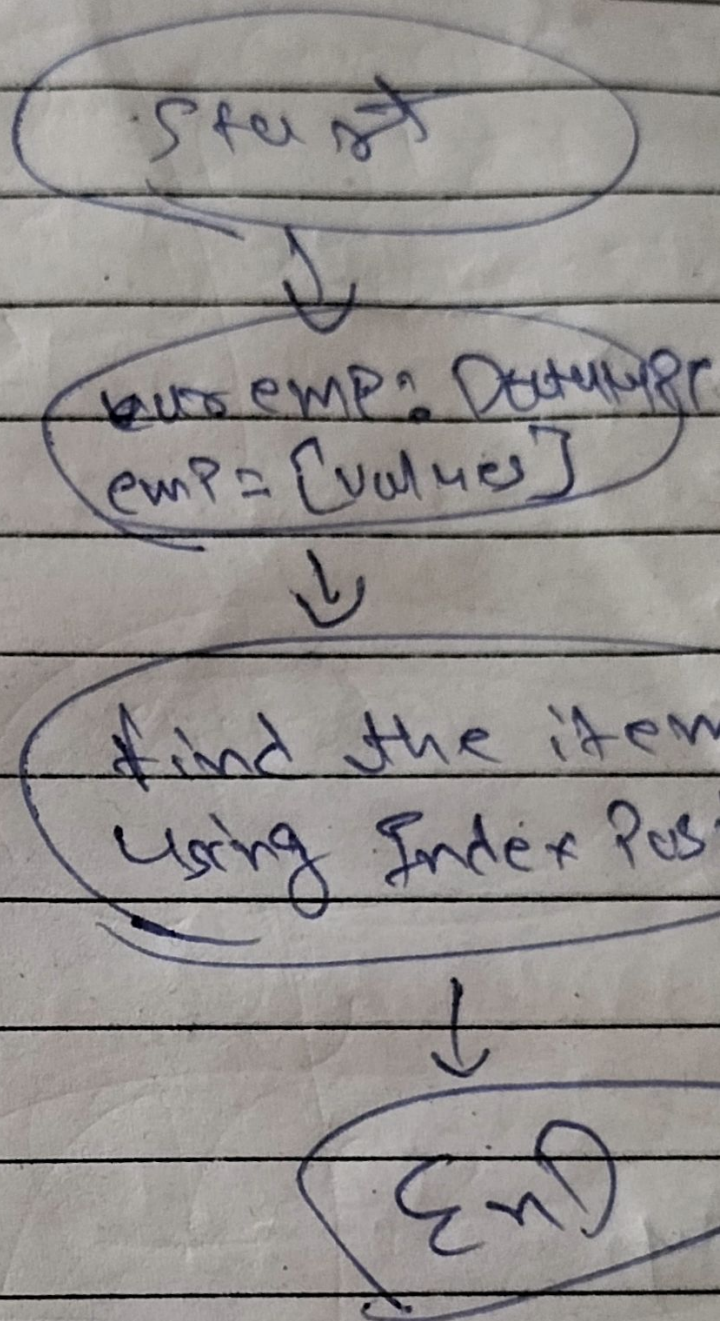 Start
var emp: Datatype
emp = [values]
find the item
using Index Pos
End